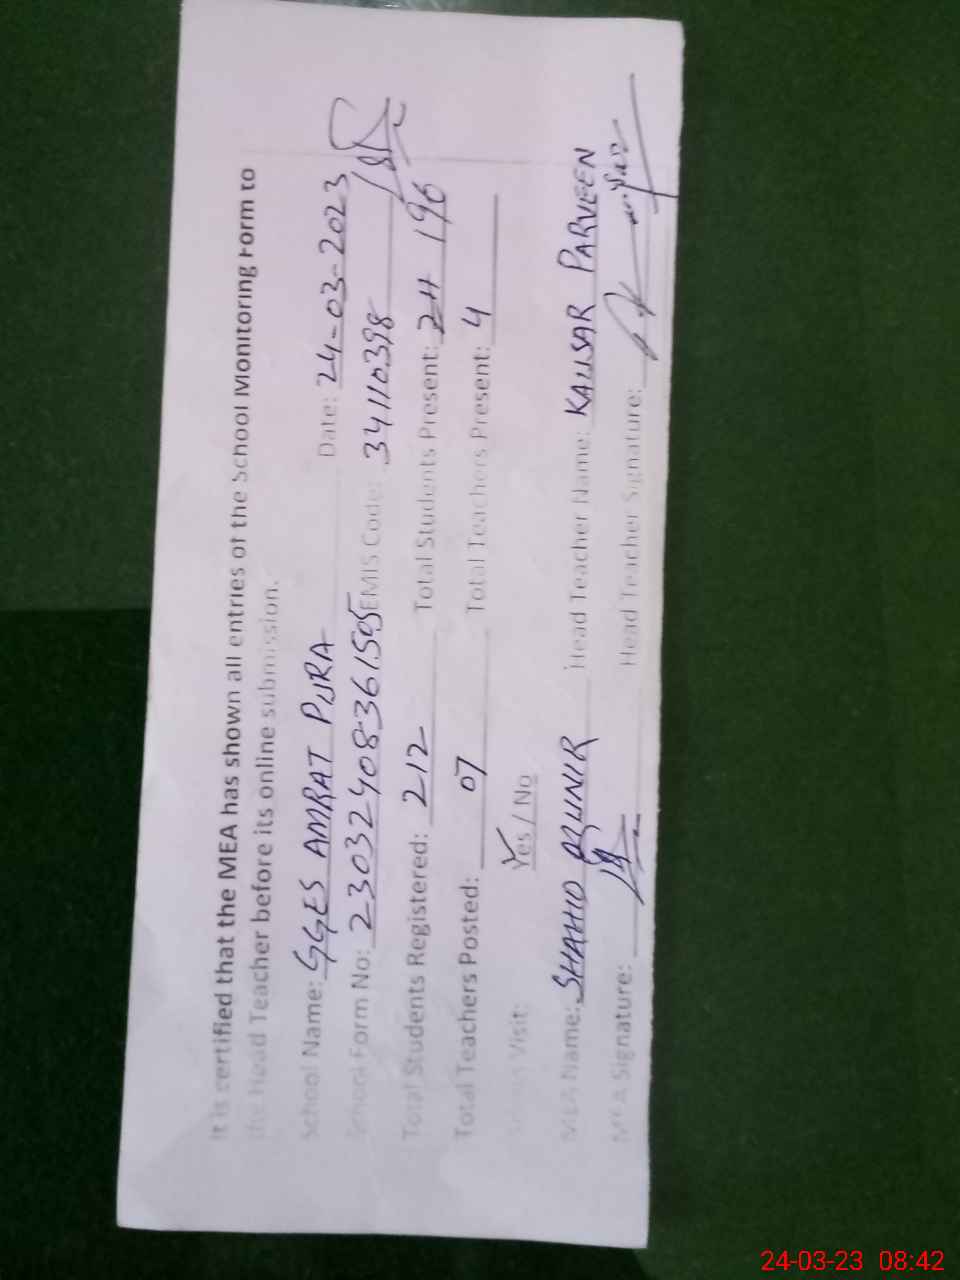 It is certified that the MEA has shown all entries of the School Monitoring Form to
the Head Teacher before its online submission.
School Name: GGES AMRAT PURA Date: 24-03-2023
School Form No: 23032408361505 EMIS Code: 34110398
Total Students Registered: 212 Total Students Present: 211 196
Total Teachers Posted: 07 Total Teachers Present: 4
Visit: Yes / No
MEA Name: SHAHID Head Teacher Name: KAUSAR PARVEEN
MEA Signature: Head Teacher Signature:
24-03-23 08:42